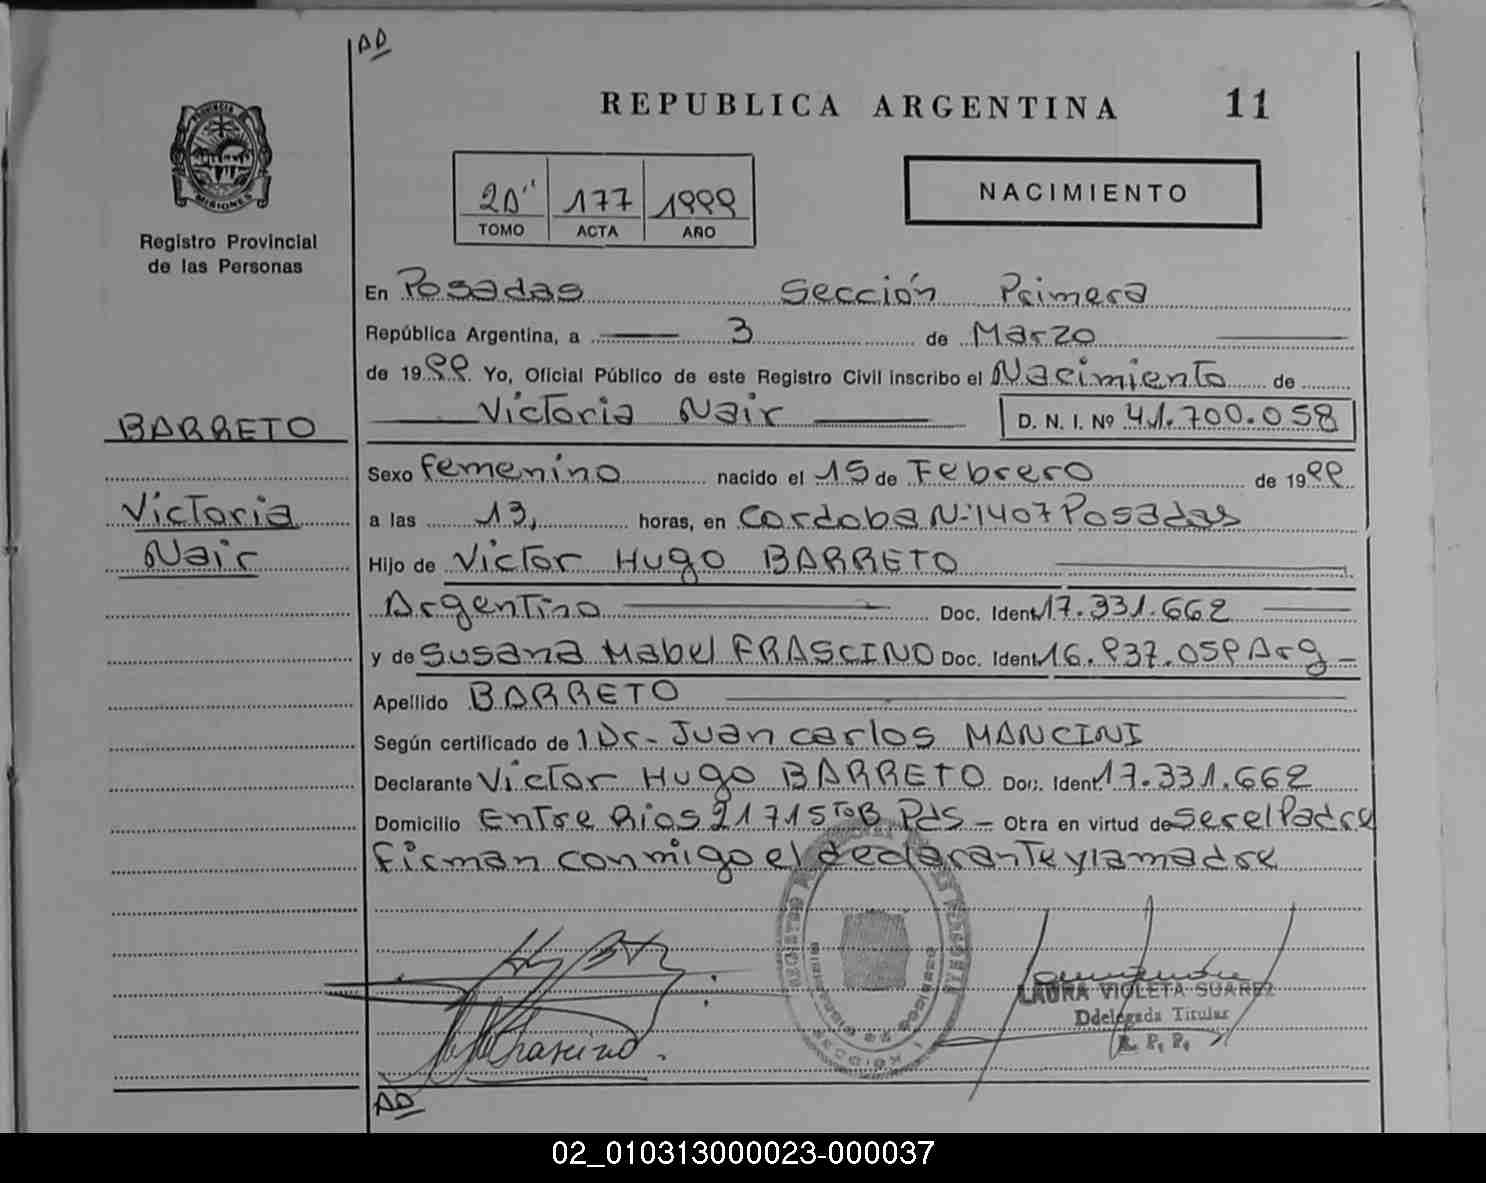 AD
REPUBLICA ARGENTINA 11
PROVINCIA
MISIONES
Registro Provincial
de las Personas
177 1999
TOMO ACTA AÑO
NACIMIENTO
En Posadas Sección Primera
República Argentina, a 3 de Marzo
de 1999. Yo, Oficial Público de este Registro Civil inscribo el Nacimiento de
Victoria Nair D. N. I. Nº 41.700.058
BARRETO
Victoria
Nair
Sexo Femenino nacido el 15 de Febrero de 1999
a las 13, horas, en Cordoba Nº 1407 Posadas
Hijo de Victor Hugo BARRETO
Argentino Doc. Ident. 17.331.662
y de Susana Mabel FRASCINO Doc. Ident. 16.937.059 Arg -
Apellido BARRETO
Según certificado de 1 Dr- Juan Carlos MANCINI
Declarante Victor Hugo BARRETO Doc. Ident. 17.331.662
Domicilio Entre Rios 21715 Pds - Otra en virtud de ser el Padre
Firman conmigo el declarante y la madre
LAURA VIOLETA SUAREZ
Ddelegada Titular
R. P. P.
AD
02_010313000023-000037